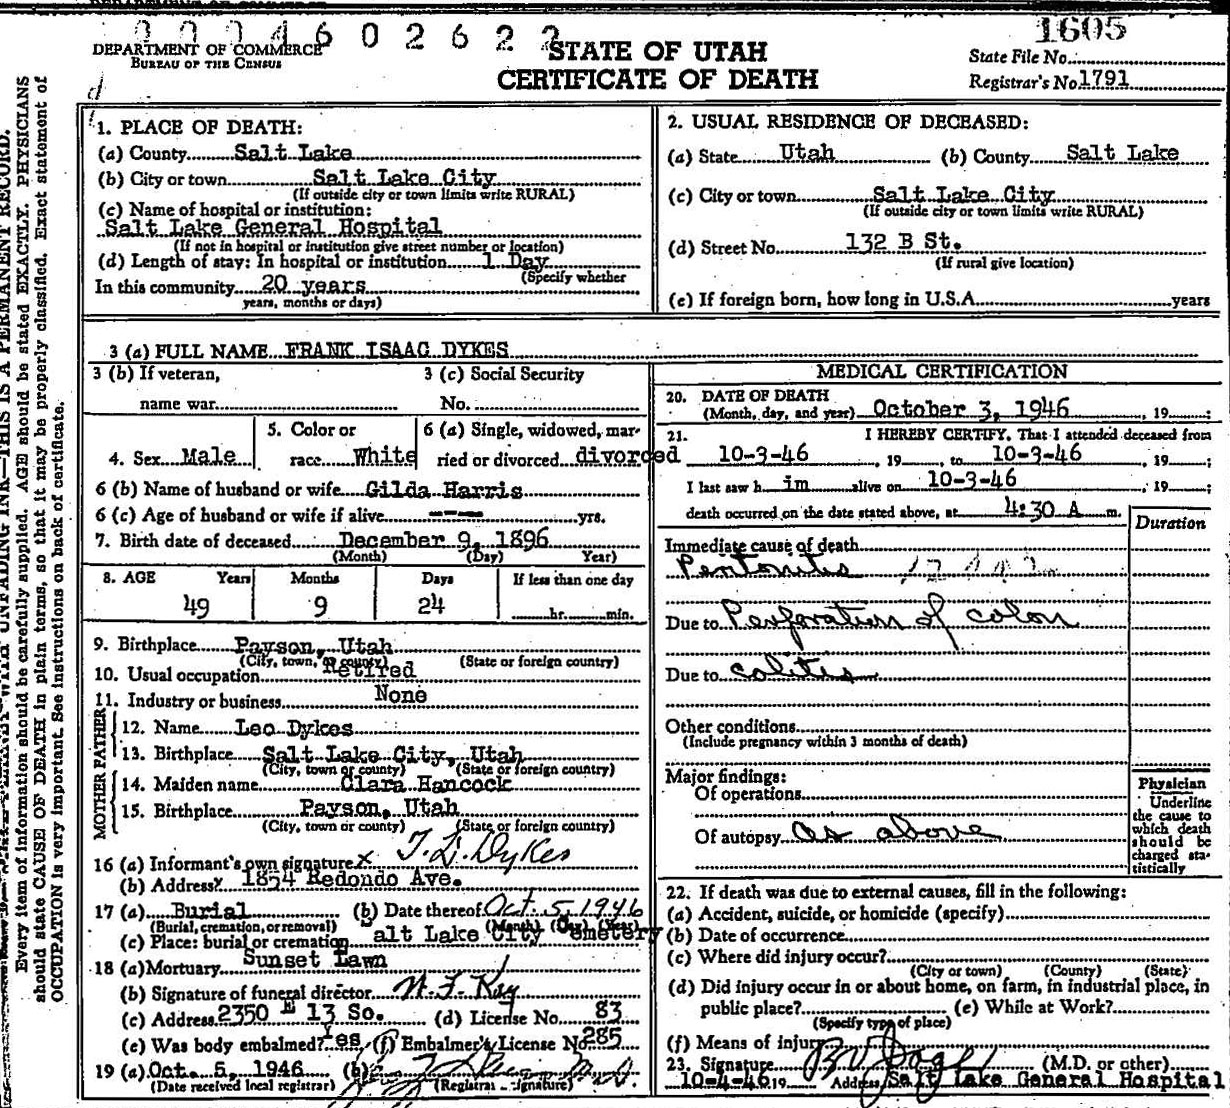 0004602622
1605
DEPARTMENT OF COMMERCE
BUREAU OF THE CENSUS
STATE OF UTAH
CERTIFICATE OF DEATH
State File No.
Registrar's No 1791
1. PLACE OF DEATH:
(a) County Salt Lake
(b) City or town Salt Lake City
(If outside city or town limits write RURAL)
(c) Name of hospital or institution:
Salt Lake General Hospital
(If not in hospital or institution give street number or location)
(d) Length of stay: In hospital or institution 1 Day
(Specify whether
In this community 20 years
years, months or days)
2. USUAL RESIDENCE OF DECEASED:
(a) State Utah (b) County Salt Lake
(c) City or town Salt Lake City
(If outside city or town limits write RURAL)
(d) Street No. 132 B St.
(If rural give location)
(e) If foreign born, how long in U.S.A. years
3 (a) FULL NAME FRANK ISAAC DYKES
3 (b) If veteran,
name war
3 (c) Social Security
No.
4. Sex Male
5. Color or
race White
6 (a) Single, widowed, mar-
ried or divorced divorced
6 (b) Name of husband or wife Gilda Harris
6 (c) Age of husband or wife if alive ---- yrs.
7. Birth date of deceased December 9, 1896
(Month) (Day) Year)
8. AGE Years Months Days If less than one day
49 9 24 hr. min.
9. Birthplace Payson, Utah
(City, town, or county) (State or foreign country)
10. Usual occupation Retired
11. Industry or business None
FATHER
12. Name Leo Dykes
13. Birthplace Salt Lake City, Utah
(City, town or county) (State or foreign country)
MOTHER
14. Maiden name Clara Hancock
15. Birthplace Payson, Utah
(City, town or county) (State or foreign country)
16 (a) Informant's own signature x
Dykes
(b) Address x 1854 Redondo Ave.
17 (a) Burial (b) Date thereof Oct. 5, 1946
(Burial, cremation, or removal) (Month) (Day) (Year)
(c) Place: burial or cremation alt Lake City Cemetery
18 (a) Mortuary Sunset Lawn
(b) Signature of funeral director
(c) Address 2350 E 13 So. (d) License No. 83
(e) Was body embalmed? Yes (f) Embalmer's License No. 285
19 (a) Oct. 5, 1946 (b)
(Date received local registrar) (Registrar signature)
MEDICAL CERTIFICATION
20. DATE OF DEATH
(Month, day, and year) October 3, 1946 , 19 ;
21. I HEREBY CERTIFY, That I attended deceased from
10-3-46 , 19 , to 10-3-46 , 19 ;
I last saw h im alive on 10-3-46 , 19 ;
death occurred on the date stated above, at 4:30 A m.
Duration
Immediate cause of death
Peritonitis
Due to Perforation of colon
Due to colitis
Other conditions
(Include pregnancy within 3 months of death)
Major findings:
Of operations
Of autopsy as above
Physician
Underline
the cause to
which death
should be
charged sta-
tistically
22. If death was due to external causes, fill in the following:
(a) Accident, suicide, or homicide (specify)
(b) Date of occurrence
(c) Where did injury occur?
(City or town) (County) (State)
(d) Did injury occur in or about home, on farm, in industrial place, in
public place? (e) While at Work?
(Specify type of place)
(f) Means of injury
23. Signature (M.D. or other)
10-4-46 19 Address Salt Lake General Hospital
THIS IS A PERMANENT RECORD.
Every item of information should be carefully supplied. AGE should be stated EXACTLY. PHYSICIANS
should state CAUSE OF DEATH in plain terms, so that it may be properly classified. Exact statement of
OCCUPATION is very important. See instructions on back of certificate.